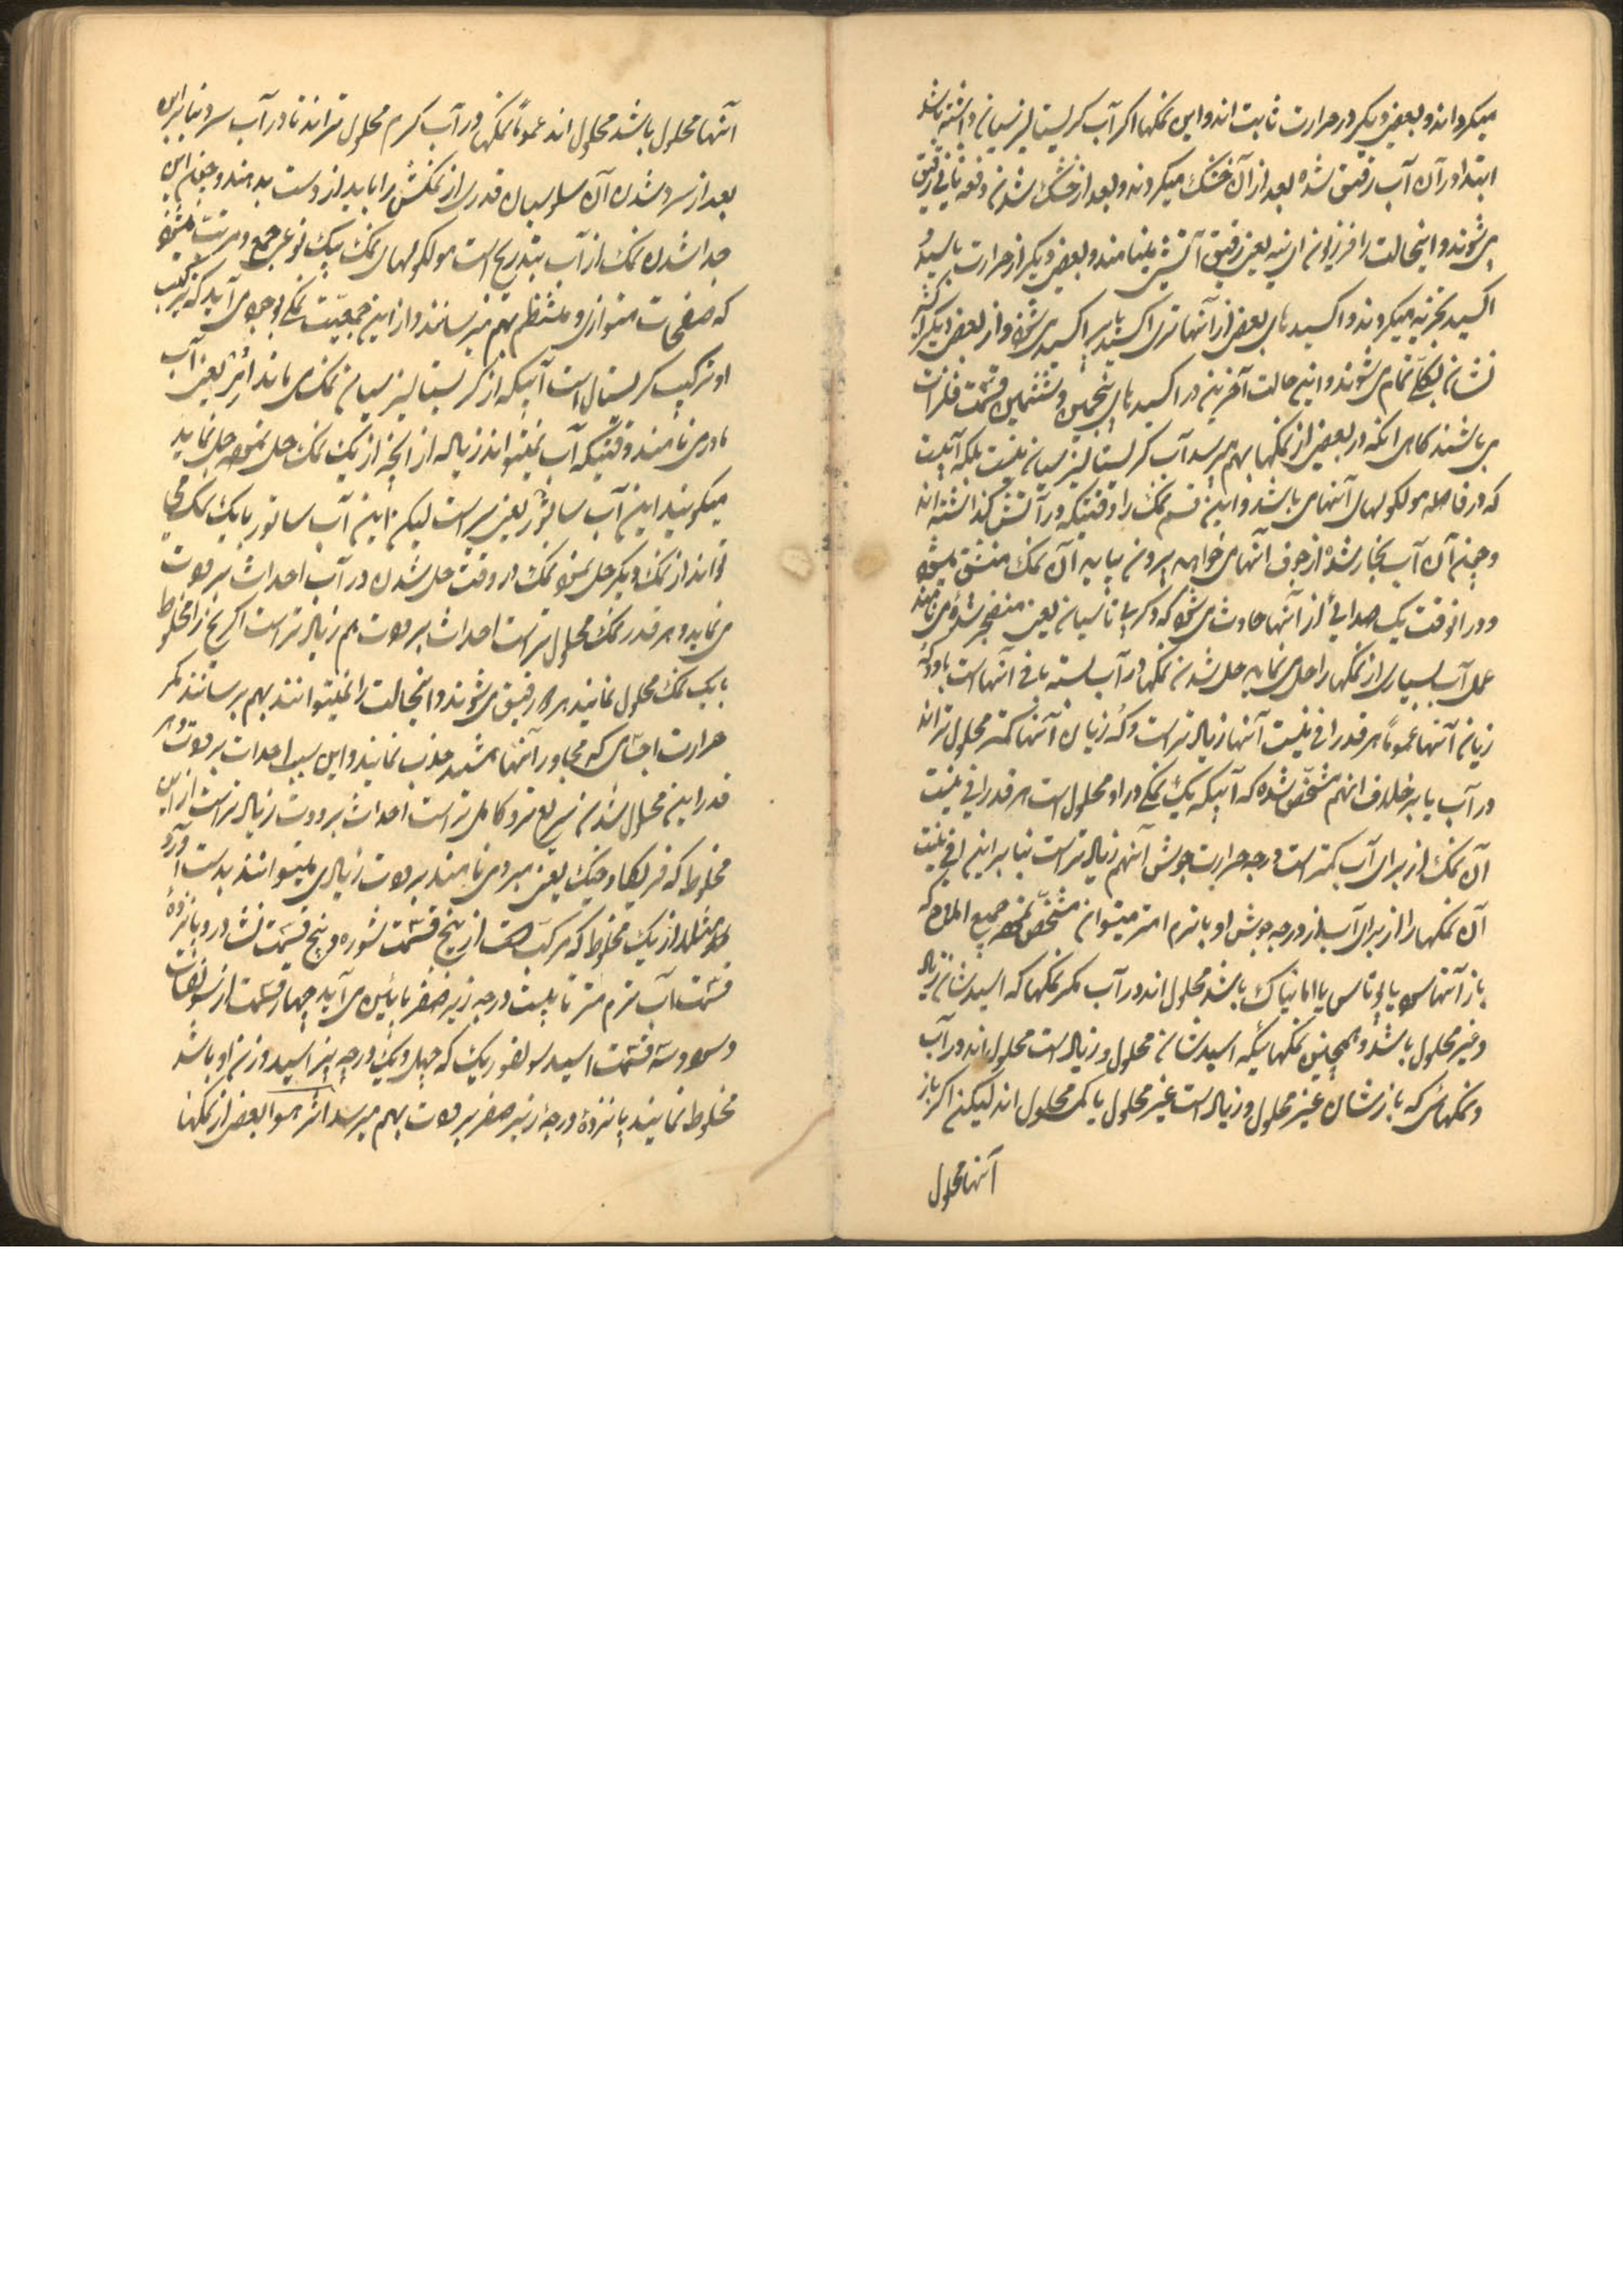 میکردانند و بعضی دیکر در حرارت ثابت اند و این نمکها اکر آب کریستالیزسیان داشته باشد
ابتدا در آن آب رقیق شده بعد از آن خشک میکردند و بعد از خشک شدن دفعه ثانی رقیق
می شوند و اینحالت را فوزیون اینیه یعنی رقیق آتشی مینامند و بعضی دیکر از حرارت باسید و
اکسید تجزیه میکردند و اکسیدهای بعضی از آنها ترک اکسید یا پراکسید می شود و از بعضی دیکر
نشان بکلی تمام می شوند و این حالت آخرین در اکسیدهای پنجمین و ششمین قسمت فلزات
می باشند کاهی انکه در بعضی از نمکها بهم میرسد آب کریستالیزسیان نیست بلکه آبیست
که در فاصله مولکولهای آنها می باشد و این قسم نمک را وقتیکه در آتش کذاشته اند
و چون آن آب بخار شده از جوف آنها می خواهد بیرون بیاید آن نمک منشق میشود
و در آنوقت یک صدائی از آنها حادث می شود که دکریپیتاسیان یعنی منفجر شدن می نامند
عمل آب بسیاری از نمکها را حل می نماید حل شدن نمکها در آب بسته بافی آنها است با و و که
زیان آنها عموماً هر قدر افینیت آنها زیاد تر است و که زیان آنها کمتر محلول تر اند
در آب یا بر خلاف انهم مشخص شده که آبیکه یک نمکی در او محلول است هر قدر افینیت
آن نمک از برای آب کمتر است درجه حرارت جوش آنهم زیاد تر است بنابر این افینیت
آن نمکها را از برای آب از درجه جوش او با ترم امتر میتوان مشخص نمود جمیع املاح که
باز آنها سود یا پوتاس یا امانیاک باشد محلول اند در آب مکر نمکها که اسیدشان زیاد
و غیر محلول باشد و همچنین نمکهائیکه اسیدشان محلول و زیاد است محلول اند در آب
و نمکهائی که بازشان غیر محلول و زیاد است غیر محلول یا کم محلول اند لیکن اکر باز
آنها محلول
آنها محلول باشد محلول اند عموماً نمکها در آب کرم محلول تر اند تا در آب سرد بنابراین
بعد از سرد شدن آن سلوسیان قدری از نمکش را باید از دست بدهند و چون این
جدا شدن نمک از آب بتدریج است مولکولهای نمک بیک نوعی جمع و مرتب میشود
که صفحات متوازی و منتظم بهم میرسانند و از این جمعیت نمکی بوجود می آید که ترکیب
او ترکیب کریستال است آبیکه از کریستالیزسیان نمک می ماند یعنی آب
مادر می نامند وقتیکه آب نمیتواند زیاد از آنچه از یک نمک حل نموده حل نماید
میکویند این آب ساتور یعنی سیر است لیکن این آب ساتور با یک نمک می
تواند از نمک دیکر حل نمود نمک در وقت حل شدن در آب احداث برودت
می نماید و هر قدر نمک محلول تر است احداث برودت هم زیاد تر است اکر یخ را مخلوط
با یک نمک محلول نمایند هر دو رقیق می شوند و اینحالت را نمیتوانند بهم برسانند مکر
حرارت اجسامی که مجاور آنها باشد جذب نمایند و این سبب احداث برودت و هر
قدر این محلول شدن سریع تر و کامل تر است احداث برودت زیاد تر است از این
مخلوط که یعنی مبرد می نامند برودت زیادی میتوانند بدست آورد
مثلا از یک مخلوط که مرکب است از پنج قسمت شوره و پنج قسمت نشادر و پانزده
قسمت آب ترم متر تا بیست درجه زیر صفر پائین می آید چهار قسمت از سولفات
دسود و سه قسمت اسید سولفوریک که چهل و یک درجه پیز اسید وزن او باشد
مخلوط نمایند پانزده درجه زیر صفر برودت بهم میرسد اثر هوا بعضی از نمکها